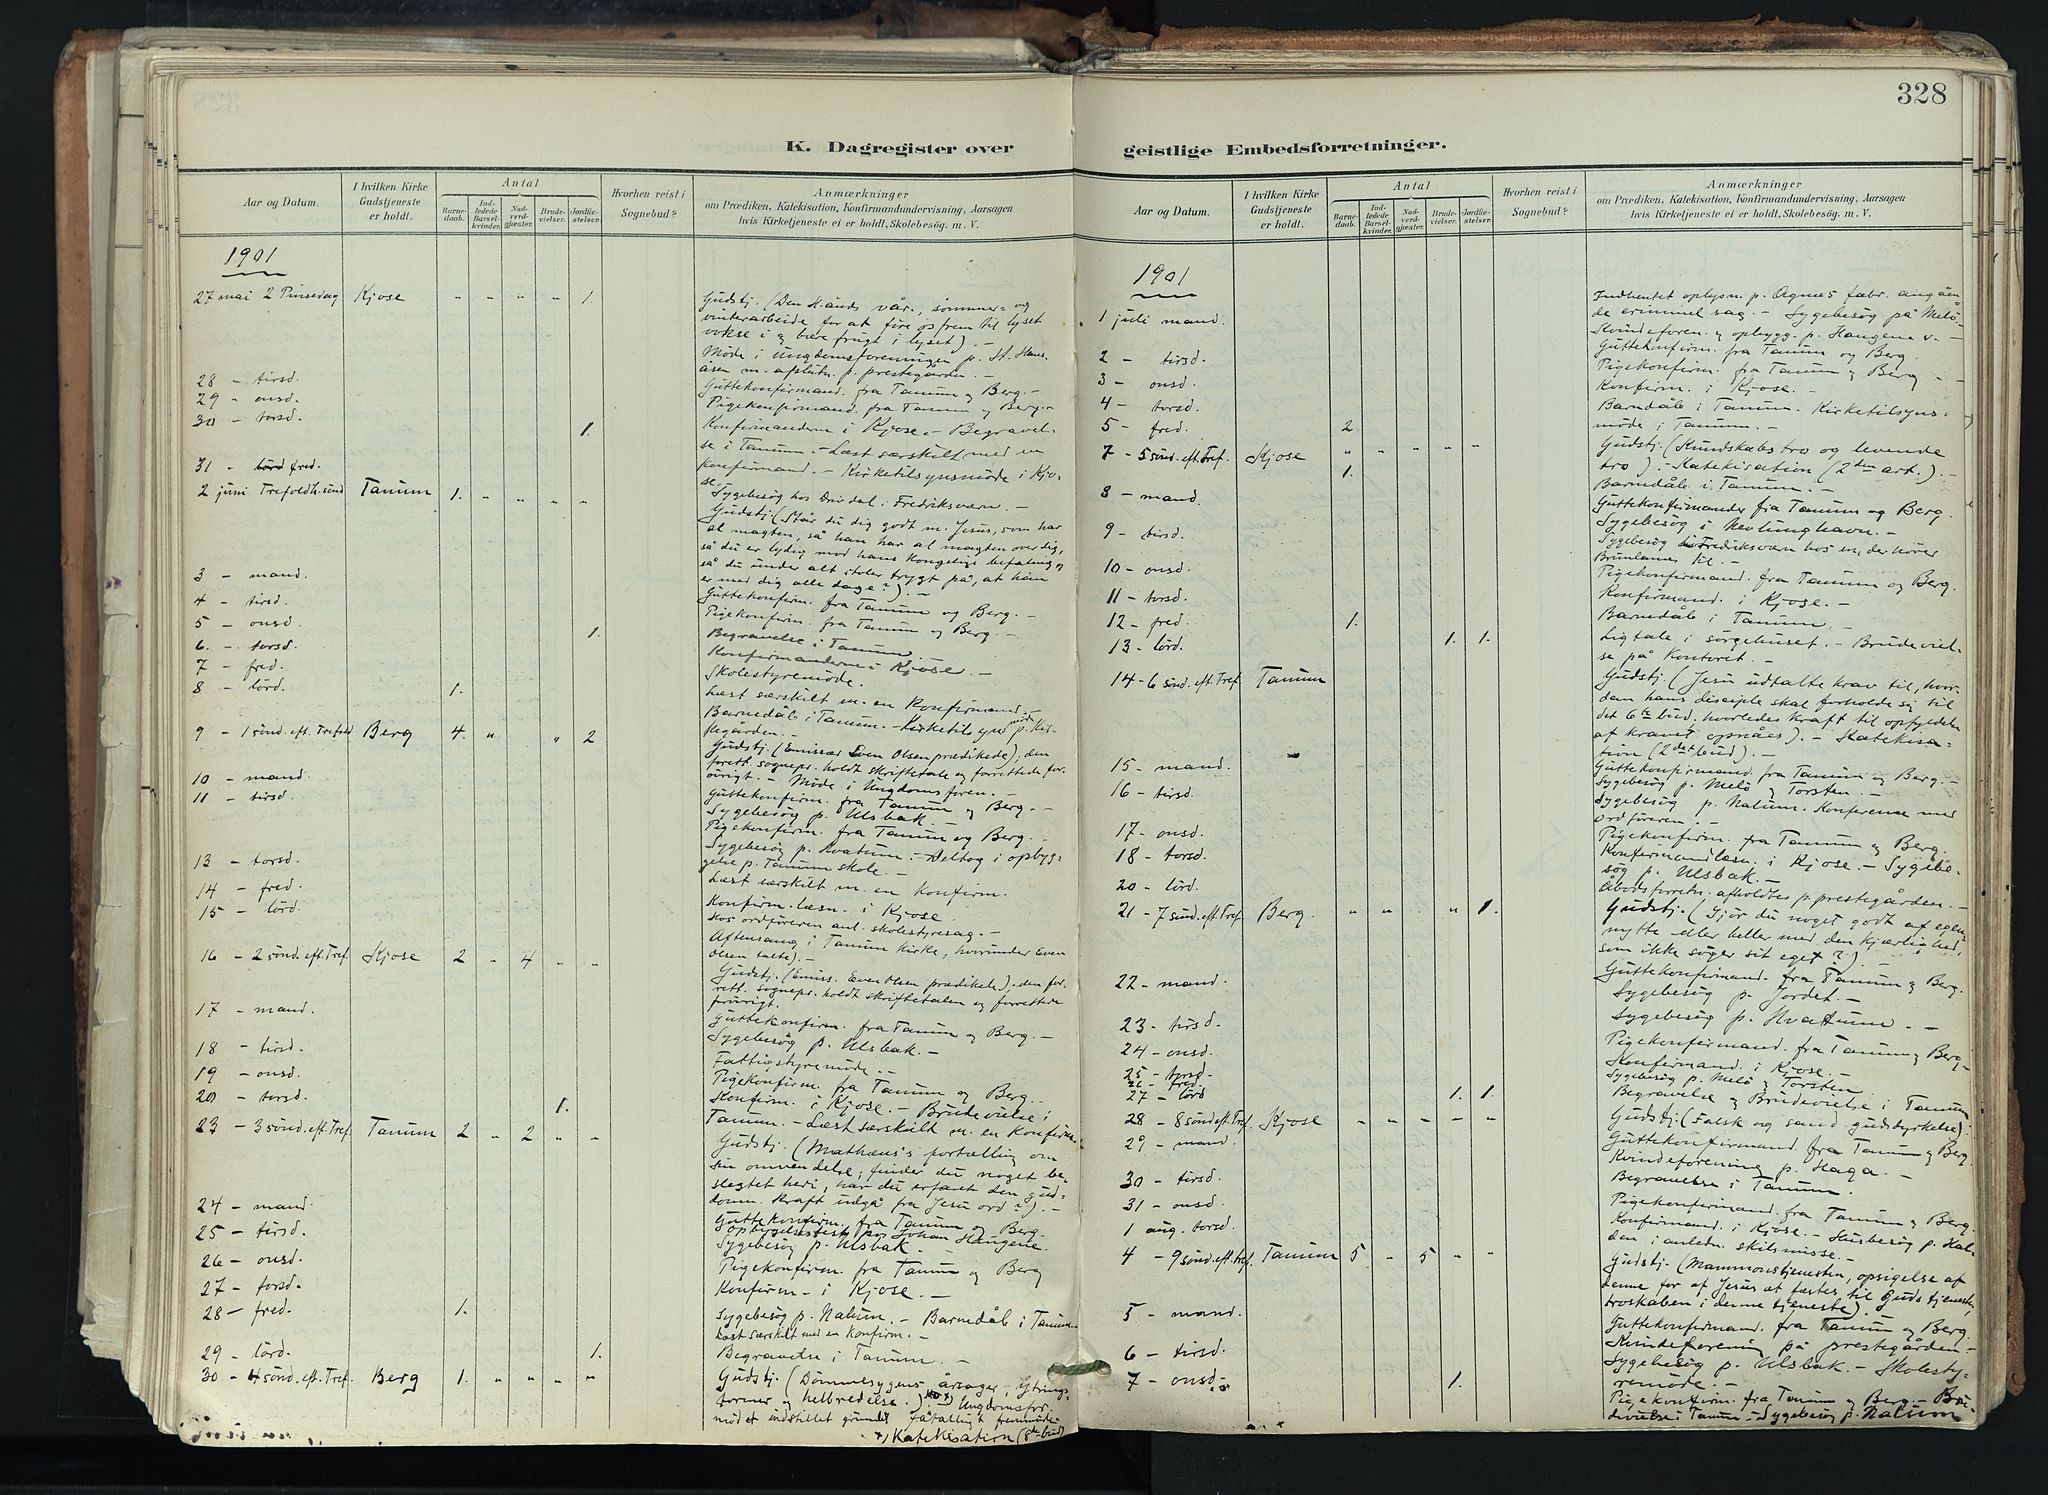 328
K. Dagregister over
Aar og Datum.
I hvilken Kirke Gudstjeneste er holdt.
Antal
Barnedaab.
Indledede Barselkvinder.
Nadverdgjæster.
Brudevielser.
Jordfæstelser.
Hvorhen reist i Sognebud?
Anmærkninger
om Prædiken, Katekisation, Konfirmandundervisning, Aarsagen
hvis Kirketjeneste ei er holdt, Skolebesøg. m. V.
1901
27 mai 2 Pinsedag Kjose " " " " 1. Gudstj. (Den H. ånds vår-, sommer- og
vinterarbeide for at føre os frem til lyset
vokse i og bære frugt i lyset). -
Møde i ungdomsforeningen p. St. Hans-
åsen m. afslutn. p. prestegården. -
28 - tirsd. Guttekonfirmand. fra Tanum og Berg. -
29 - onsd. Pigekonfirmand. fra Tanum og Berg. -
30 - torsd. 1. Konfirmanderne i Kjose. - Begravel-
se i Tanum. - Læst særskilt med en
31 - fred. konfirmand. - Kirketilsynsmøde i Kjo-
se.
2 juni Trefoldh. sønd Tanum 1. " " " " Sygebesøg hos i Fredriksværn. -
Gudstj. (Står du dig godt m. Jesus, som har
al magten, så han har al magten over dig,
så du er lydig mod hans kongelige befaling og
så du under alt stoler trygt på, at han
er med dig alle dage?). -
3 - mand. Guttekonfirm. fra Tanum og Berg. -
4 - tirsd. Pigekonfirm. fra Tanum og Berg. -
5 - onsd. 1. Begravelse i Tanum. -
6 - torsd. Konfirmanderne i Kjose. -
7 - fred. Skolestyremøde.
8 - lørd. 1. Læst særskilt m. en Konfirmand. -
Barnedåb i Tanum. - Kirketilsynsmøde p. Kir-
kegården. -
9 - 1 sønd. eft. Trefold Berg 4. " " 2 Gudstj. (Emissær Even Olsen prædikede); den
forrett. sognepr. holdt skriftetale og forrettede for-
øvrigt. - Møde i Ungdomsforen. -
10 - mand. Guttekonfirm. fra Tanum og Berg. -
11 - tirsd. Sygebesøg p. Ulsbak. -
Pigekonfirm. fra Tanum og Berg. -
Sygebesøg p. Kvatum. - Deltog i opbyg-
gelse p. Tanum skole. -
13 - torsd. Læst særskilt m. en konfirm.
14 - fred. Konfirm. læsn. i Kjose.
15 - lørd. Hos ordføreren anl. skolestyresag. -
Aftensang i Tanum Kirke, hvorunder Even
Olsen talte). -
16 - 2 sønd. eft. Tref. Kjose 2 " 4 " " Gudstj. (Emiss. Even Olsen prædikede). den for-
rett. sognepr. holdt skriftetalen og forrettede
forøvrigt.
17 - mand. Guttekonfirm. fra Tanum og Berg. -
Sygebesøg p. Ulsbak. -
18 - tirsd. Fattigstyremøde. -
19 - onsd. Pigekonfirm. fra Tanum og Berg. -
20 - torsd. 1. Konfirm. i Kjose. - Brudevielse i
Tanum. - Læst særskilt m. en Konfirm.
23 - 3 sønd. eft. Tref. Tanum 2 " 2 " " Gudstj. (Mathæus's fortælling om
sin omvendelse; finder du noget be-
slegtet heri, har du erfaret den gud-
domm. kraft udgå fra Jesu ord?). -
24 - mand. Guttekonfirm. fra Tanum og Berg.
25 - tirsd. Johan Haugene.
Sygebesøg p. Ulsbak. -
26 - onsd. Pigekonfirm. fra Tanum og Berg
27 - torsd. Konfirm. i Kjose. -
28 - fred. 1. Sygebesøg p. Nalum. - Barnedåb i Tanum. -
Læst særskilt med en Konfirm. -
29 - lørd. 1. Begravelse i Tanum. -
30 - 4 sønd. eft. Tref. Berg 1. " " " " Gudstj. (Dømmesygens årsager, ytrings-
former og helbredelse.) - Ungdomsfor.
mødet indstillet grundet fåtalligt fremmøde
x) Katekisation (8de bud)
geistlige Embedsforretninger.
Aar og Datum.
I hvilken Kirke Gudstjeneste er holdt.
Antal
Barnedaab.
Indledede Barselkvinder.
Nadverdgjæster.
Brudevielser.
Jordfæstelser.
Hvorhen reist i Sognebud?
Anmærkninger
om Prædiken, Katekisation, Konfirmandundervisning, Aarsagen
hvis Kirketjeneste ei er holdt, Skolebesøg. m. V.
1901
1 juli mand. Indhentet oplysn. p. Agnes fabr. angåen-
de criminel sag. - Sygebesøg på Melø-
Kvindeforen. og opbygg. p. Haugene v. -
Guttekonfirm. fra Tanum og Berg.
2 - tirsd. Pigekonfirm. fra Tanum og Berg -
3 - onsd. Konfirm. i Kjose. -
4 - torsd. Barndåb i Tanum. Kirketilsyns-
5 - fred. 2. møde i Tanum. -
7 - 5 sønd. eft. Tref. Kjose " " " " " Gudstj. (Kundskabstro og levende
1. tro). - Katekisation (2den art.). -
Barndåb i Tanum. -
8 - mand Guttekonfirmander fra Tanum og Berg.
Sygebesøg i Nevlunghavn. -
9 - tirsd. Sygebesøg i Fredriksværn hos en, der hører
Brunlanes til. -
10 - onsd. Pigekonfirmand. fra Tanum og Berg.
11 - torsd. Konfirmand. i Kjose. -
12 - fred. 1. Barndåb i Tanum. -
13 - lørd. 1. 1. Ligtale i sørgehuset. - Brudeviel-
se på kontoret. -
14 - 6 sønd. eft. Tref Tanum Gudstj. (Jesu udtalte krav til, hvor-
dan hans disciple skal forholde sig til
det 6te bud. hvorledes kraft til opfyldelse
af kravet opnåes). - Katekisa-
tion (2det bud). -
15 - mand. Guttekonfirmand. fra Tanum og Berg. -
Sygebesøg p. Melø og Torsten. -
16 - tirsd. Sygebesøg p. Nalum. Konference med
ordføreren. -
17 - onsd. Pigekonfirm. fra Tanum og Berg.
18 - torsd. Konfirmandlæsn. i Kjose. - Sygebe-
søg p. Ulsbak. -
20 - lørd. Åbodsforretn. afholdtes p. prestegården. -
21 - 7 sønd. eft. Tref. Berg. " " " 1. Gudstj. (Gjør du noget godt af egen-
nytte eller heller med den kjærlighed,
som ikke søger sit eget?). -
22 - mand. Guttekonfirmand. fra Tanum og Berg.
Sygebesøg p. Jordet. -
23 - tirsd. Sygebesøg p. Kvatum. -
24 - onsd. Pigekonfirmand. fra Tanum og Berg. -
25 - torsd. Konfirmand. i Kjose. -
26 - fred. Sygebesøg p. Melø og Torsten
27 - lørd 1. 1. Begravelse og Brudevielse i Tanum
28 - 8 sønd. eft. Tref. Kjose - - - - - Gudstj. (Falsk og sand gudsdyrkelse).
29 - mand. Guttekonfirmand. fra Tanum og Berg.
Kvindeforening p. Haga. -
30 - tirsd. Begravelse i Tanum.
31 - onsd. Pigekonfirmand. fra Tanum og Berg.
1 aug. torsd. Konfirmand. i Kjose. - Husbesøg p. Hal-
den i anledn. skilsmisse. -
4 - 9 sønd. eft. Tref. Tanum 5 " 5 " " Gudstj. (Mammonstjenesten, opsigelse af
denne for af Jesus at fæstes til Guds tjeneste,
troskaben i denne tjeneste).
5 - mand. Guttekonfirmand. fra Tanum og Berg.
Kvindeforening på prestegården -
6 - tirsd. Sygebesøg p. Ulsbak. - Skolesty-
remøde. -
7 - onsd. 1. Pigekonfirm. fra Tanum og Berg. - Bru-
devielse i Tanum. - Sygebesøg p. Nalum